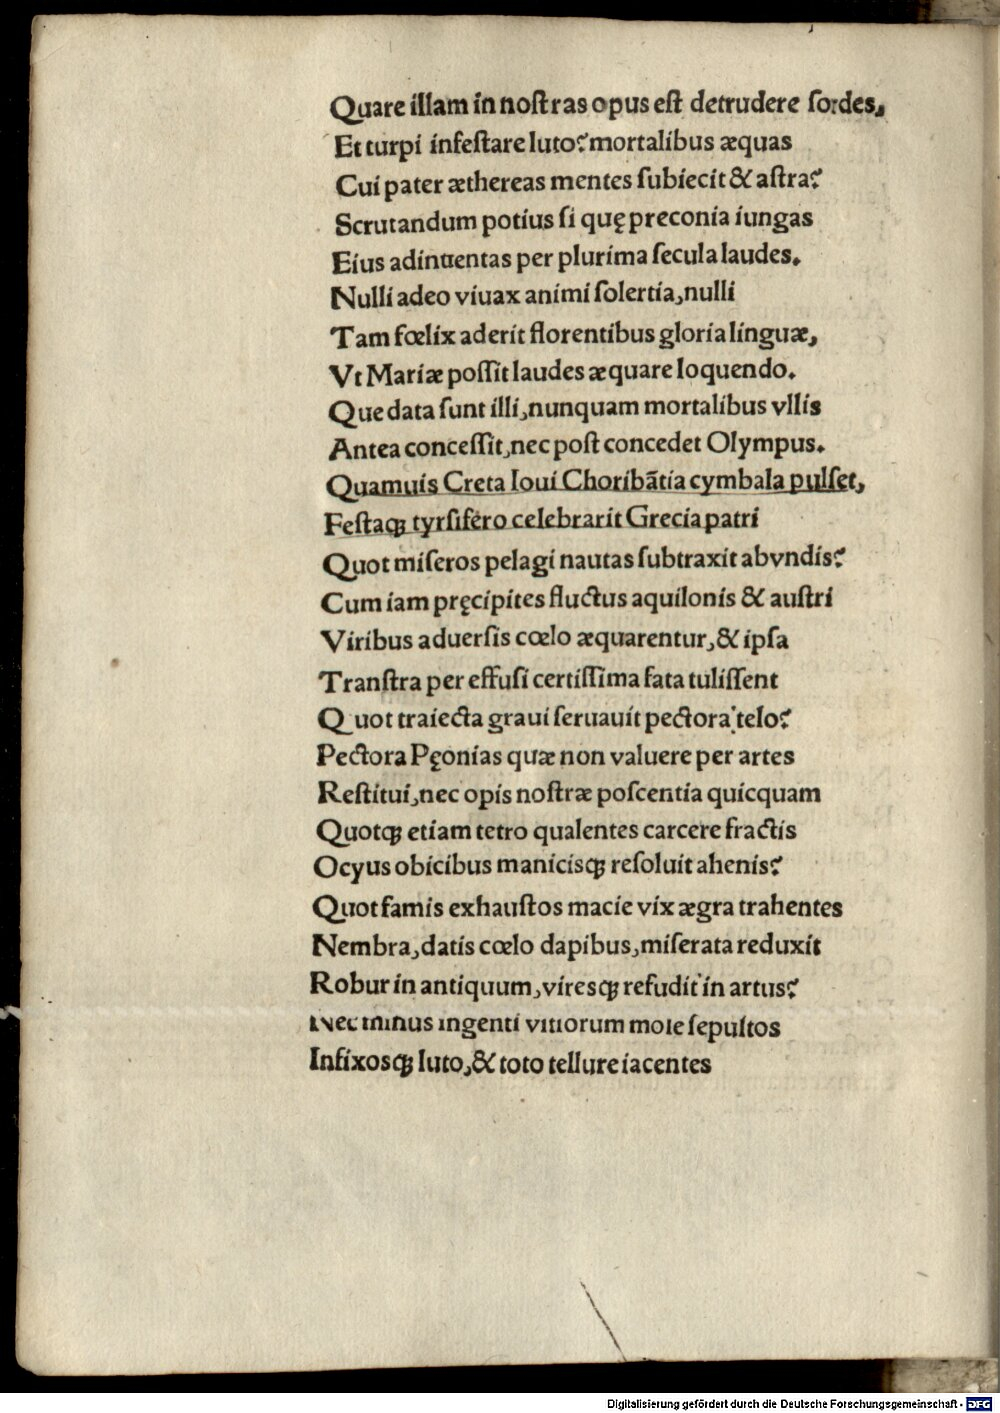 Quare illam in noſtras opus eſt detrudere ſordes,
Et turpi infeſtare luto? mortalibus æquas
Cui pater æthereas mentes ſubiecit & aſtra?
Scrutandum potius ſi quę preconia iungas
Eius adinuentas per plurima ſecula laudes.
Nulli adeo viuax animi ſolertia, nulli
Tam fœlix aderit florentibus gloria linguæ,
Vt Mariæ poſſit laudes æquare loquendo.
Que data ſunt illi, nunquam mortalibus vllis
Antea conceſſit, nec poſt concedet Olympus.
Quamuis Creta Ioui Choribātia cymbala pulſet,
Feſtaqꝫ tyrſifero celebrarit Grecia patri
Quot miſeros pelagi nautas ſubtraxit abvndis?
Cum iam pręcipites fluctus aquilonis & auſtri
Viribus aduerſis cœlo æquarentur, & ipſa
Tranſtra per effuſi certiſſima fata tuliſſent
Quot traiecta graui ſeruauit pectora telo?
Pectora Pęonias quæ non valuere per artes
Reſtitui, nec opis noſtræ poſcentia quicquam
Quotqꝫ etiam tetro qualentes carcere fractis
Ocyus obicibus maniciſqꝫ reſoluit ahenis?
Quot famis exhauſtos macie vix ægra trahentes
Nembra, datis cœlo dapibus, miſerata reduxit
Robur in antiquum, vireſqꝫ refudit in artus?
Nec minus ingenti vitiorum mole ſepultos
Infixoſqꝫ luto, & toto tellure iacentes
Digitalisierung gefördert durch die Deutsche Forschungsgemeinschaft - DFG